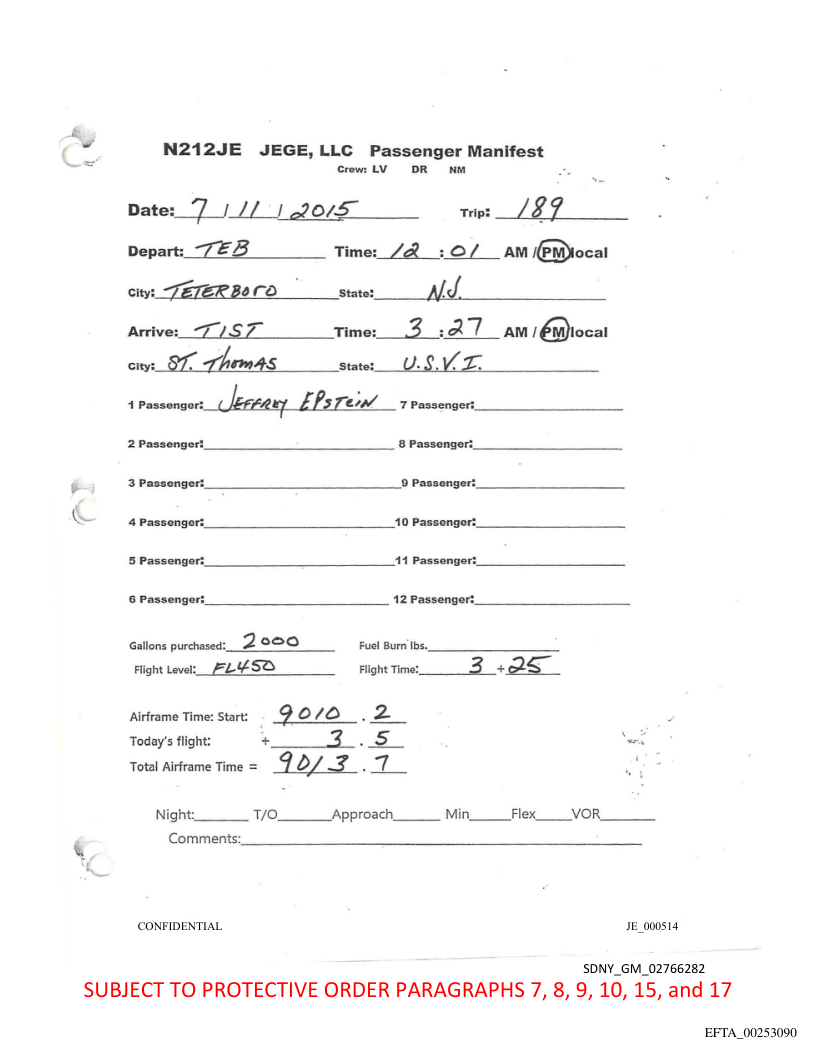 N212JE JEGE, LLC Passenger Manifest
Crew: LV DR NM
Date: 7 / 11 / 2015 Trip: 189
Depart: TEB Time: 12 : 01 AM / PM local
City: TETERBORO State: N.J.
Arrive: TIST Time: 3 : 27 AM / PM local
City: ST. THOMAS State: U.S.V.I.
1 Passenger: JEFFREY EPSTEIN 7 Passenger:
2 Passenger: 8 Passenger:
3 Passenger: 9 Passenger:
4 Passenger: 10 Passenger:
5 Passenger: 11 Passenger:
6 Passenger: 12 Passenger:
Gallons purchased: 2000 Fuel Burn lbs.
Flight Level: FL450 Flight Time: 3 + 25
Airframe Time: Start: 9010 . 2
Today's flight: + 3 . 5
Total Airframe Time = 9013 . 7
Night: T/O Approach Min Flex VOR
Comments:
CONFIDENTIAL JE_000514
SDNY_GM_02766282
SUBJECT TO PROTECTIVE ORDER PARAGRAPHS 7, 8, 9, 10, 15, and 17
EFTA_00253090